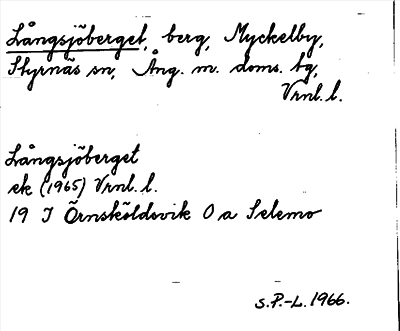 Långsjöberget, berg, Myckelby,
Styrnäs sn, Ång. m. doms. tg,
Vrnl. l.
Långsjöberget
ek (1965) Vrnl. l.
19 J Örnsköldsvik O a Selemo
S.P.-L. 1966.